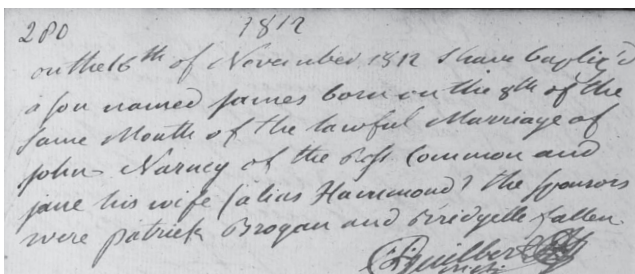 280 1812
on the 16th of November 1812 I have baptiz'd
a son named James born on the 8th of the
same Month of the lawful Marriage of
John Narney of the Ross Common and
jane his wife (alias Hammond) the sponsors
were patrick Brogan and Bridgette fallen